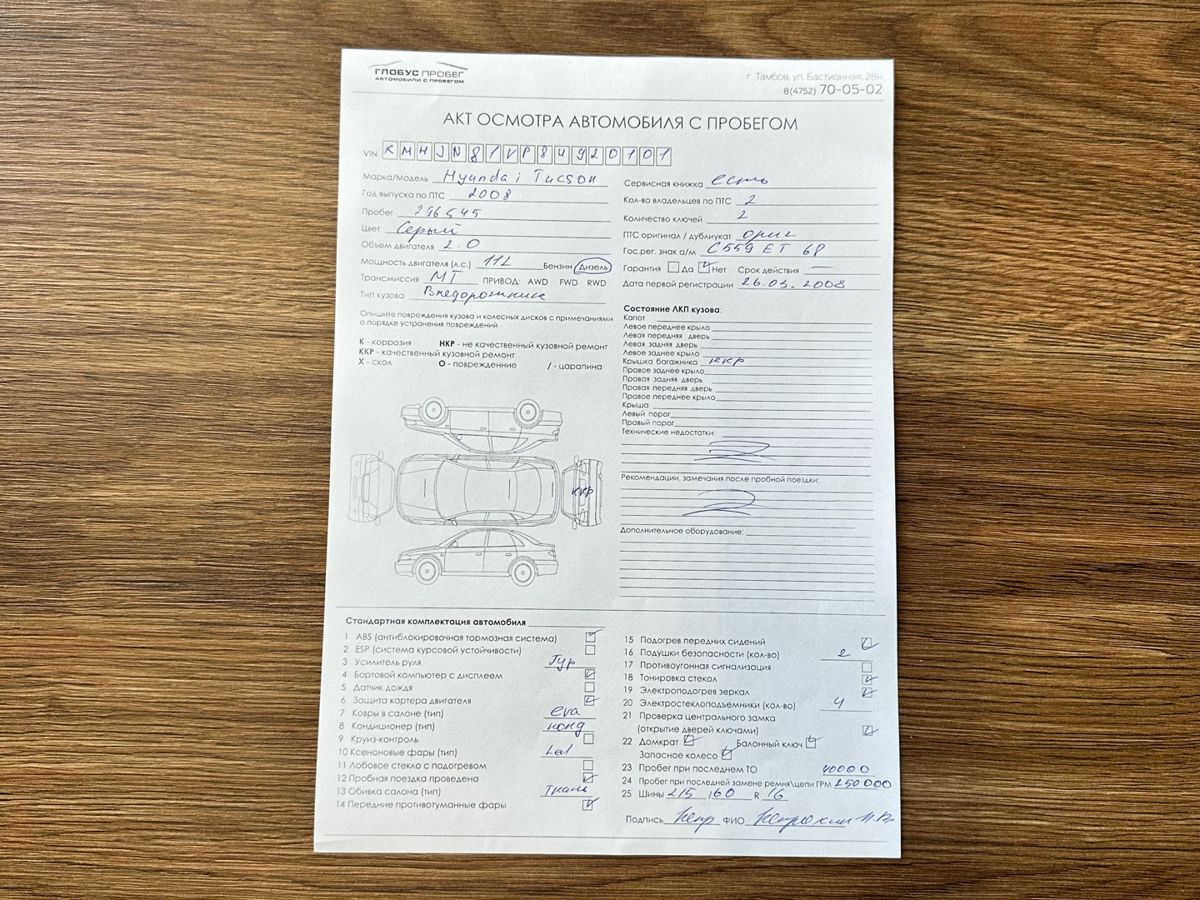 ГЛОБУС ПРОБЕГ
АВТОМОБИЛИ С ПРОБЕГОМ
г. Тамбов, ул. Бастионная, 28н
8(4752) 70-05-02
АКТ ОСМОТРА АВТОМОБИЛЯ С ПРОБЕГОМ
VIN KMHJN81VP8U920701
Марка/Модель Hyundai Tucson
Год выпуска по ПТС 2008
Пробег 296545
Цвет Серый
Объем двигателя 2.0
Мощность двигателя (л.с.) 112 Бензин Дизель
Трансмиссия МТ ПРИВОД: AWD FWD RWD
Тип кузова Внедорожник
Сервисная книжка есть
Кол-во владельцев по ПТС 2
Количество ключей 2
ПТС оригинал / дубликат ориг
Гос.рег. знак а/м С559ЕТ 68
Гарантия Да Нет Срок действия —
Дата первой регистрации 26.03.2008
Опишите повреждения кузова и колесных дисков с примечаниями
о порядке устранения повреждений
К - коррозия НКР - не качественный кузовной ремонт
ККР - качественный кузовной ремонт
Х - скол О - повреждение / - царапина
ККР
Состояние ЛКП кузова:
Капот
Левое переднее крыло
Левая передняя дверь
Левая задняя дверь
Левое заднее крыло
Крышка багажника ккр
Правое заднее крыло
Правая задняя дверь
Правая передняя дверь
Правое переднее крыло
Крыша
Левый порог
Правый порог
Технические недостатки:
Рекомендации, замечания после пробной поездки:
Дополнительное оборудование:
Стандартная комплектация автомобиля
1 ABS (антиблокировочная тормозная система)
2 ESP (система курсовой устойчивости)
3 Усилитель руля Гур
4 Бортовой компьютер с дисплеем
5 Датчик дождя
6 Защита картера двигателя
7 Ковры в салоне (тип) eva
8 Кондиционер (тип) конд
9 Круиз-контроль
10 Ксеноновые фары (тип) Led
11 Лобовое стекло с подогревом
12 Пробная поездка проведена
13 Обивка салона (тип) Ткань
14 Передние противотуманные фары
15 Подогрев передних сидений
16 Подушки безопасности (кол-во) 2
17 Противоугонная сигнализация
18 Тонировка стекол
19 Электроподогрев зеркал
20 Электростеклоподъемники (кол-во) 4
21 Проверка центрального замка
(открытие дверей ключами)
22 Домкрат Балонный ключ
Запасное колесо
23 Пробег при последнем ТО 40000
24 Пробег при последней замене ремня\цепи ГРМ 250000
25 Шины 215 /60 R 16
Подпись ФИО